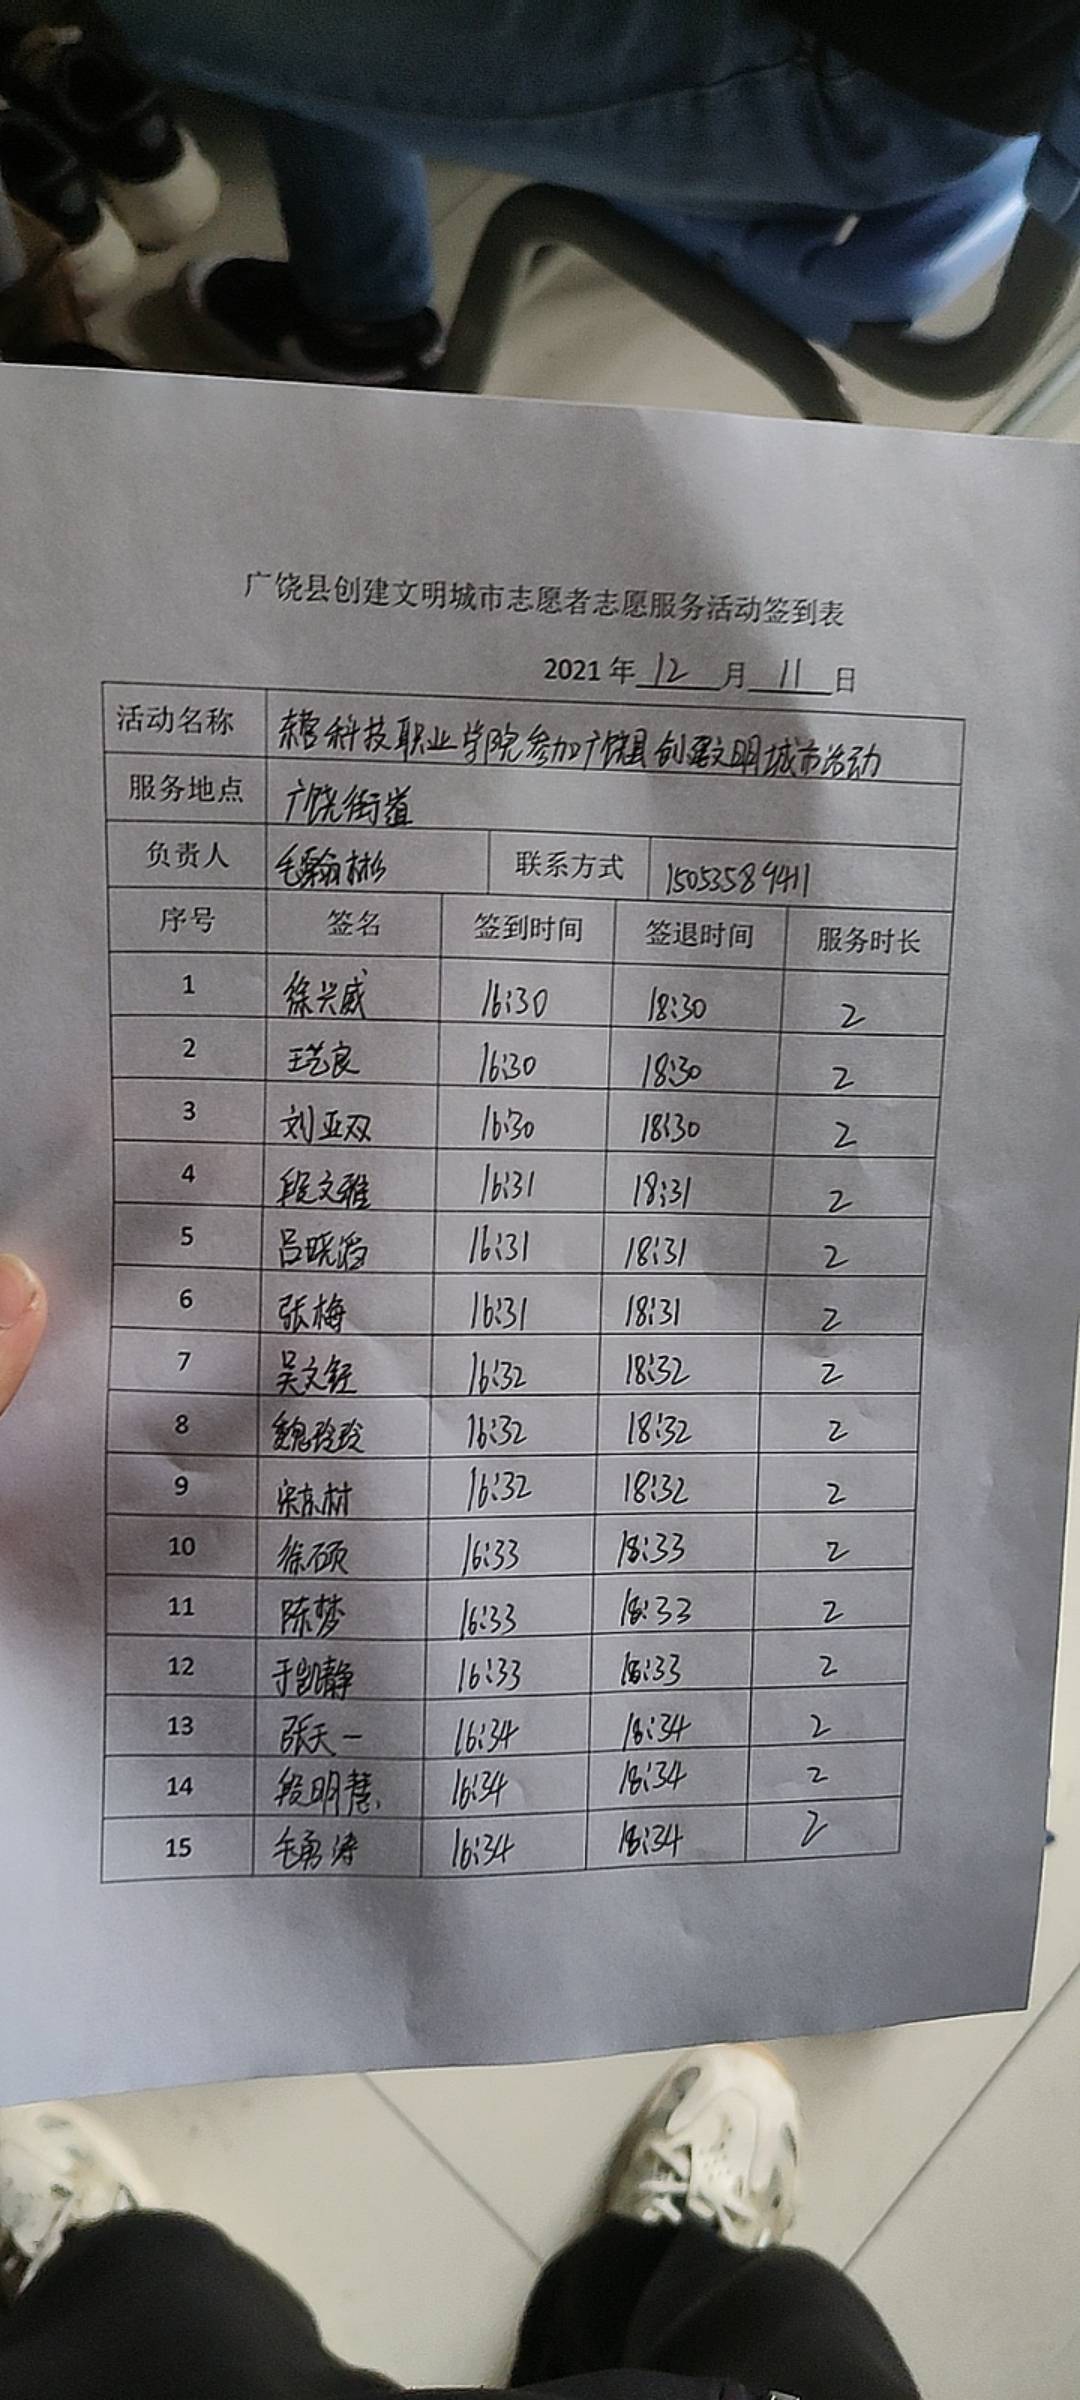 广饶县创建文明城市志愿者志愿服务活动签到表
2021 年 12 月 11 日
活动名称 东营科技职业学院参加广饶县创建文明城市活动
服务地点 广饶街道
负责人 毛翰彬 联系方式 15053589411
序号 签名 签到时间 签退时间 服务时长
1 徐兴威 16:30 18:30 2
2 王艺良 16:30 18:30 2
3 刘亚双 16:30 18:30 2
4 段文雅 16:31 18:31 2
5 吕晓 16:31 18:31 2
6 张梅 16:31 18:31 2
7 吴文钰 16:32 18:32 2
8 魏玲玲 16:32 18:32 2
9 宋东材 16:32 18:32 2
10 徐硕 16:33 18:33 2
11 陈梦 16:33 18:33 2
12 于凯静 16:33 18:33 2
13 张天一 16:34 18:34 2
14 段明慧 16:34 18:34 2
15 毛勇涛 16:34 18:34 2